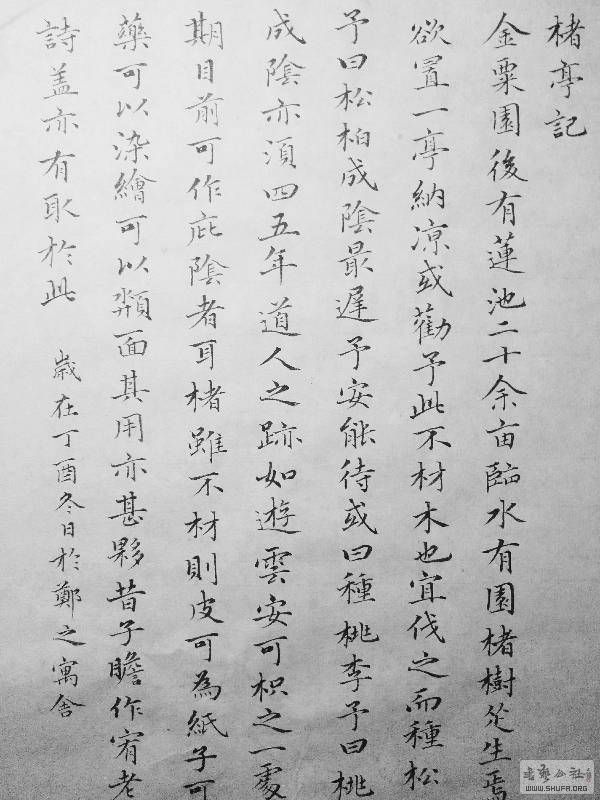 楮亭記
金粟園後有蓮池二十余亩臨水有園楮樹丛生焉
欲置一亭納凉或勸予此不材木也宜伐之而種松
予曰松柏成陰最遲予安能待或曰種桃李予曰桃
成陰亦須四五年道人之跡如遊雲安可枳之一處
期目前可作庇陰者耳楮雖不材則皮可為紙子可
藥可以染繪可以頮面其用亦甚夥昔子瞻作宥老
詩盖亦有取於此
歲在丁酉冬日於鄭之寓舍
書藝公社
WWW.SHUFA.ORG